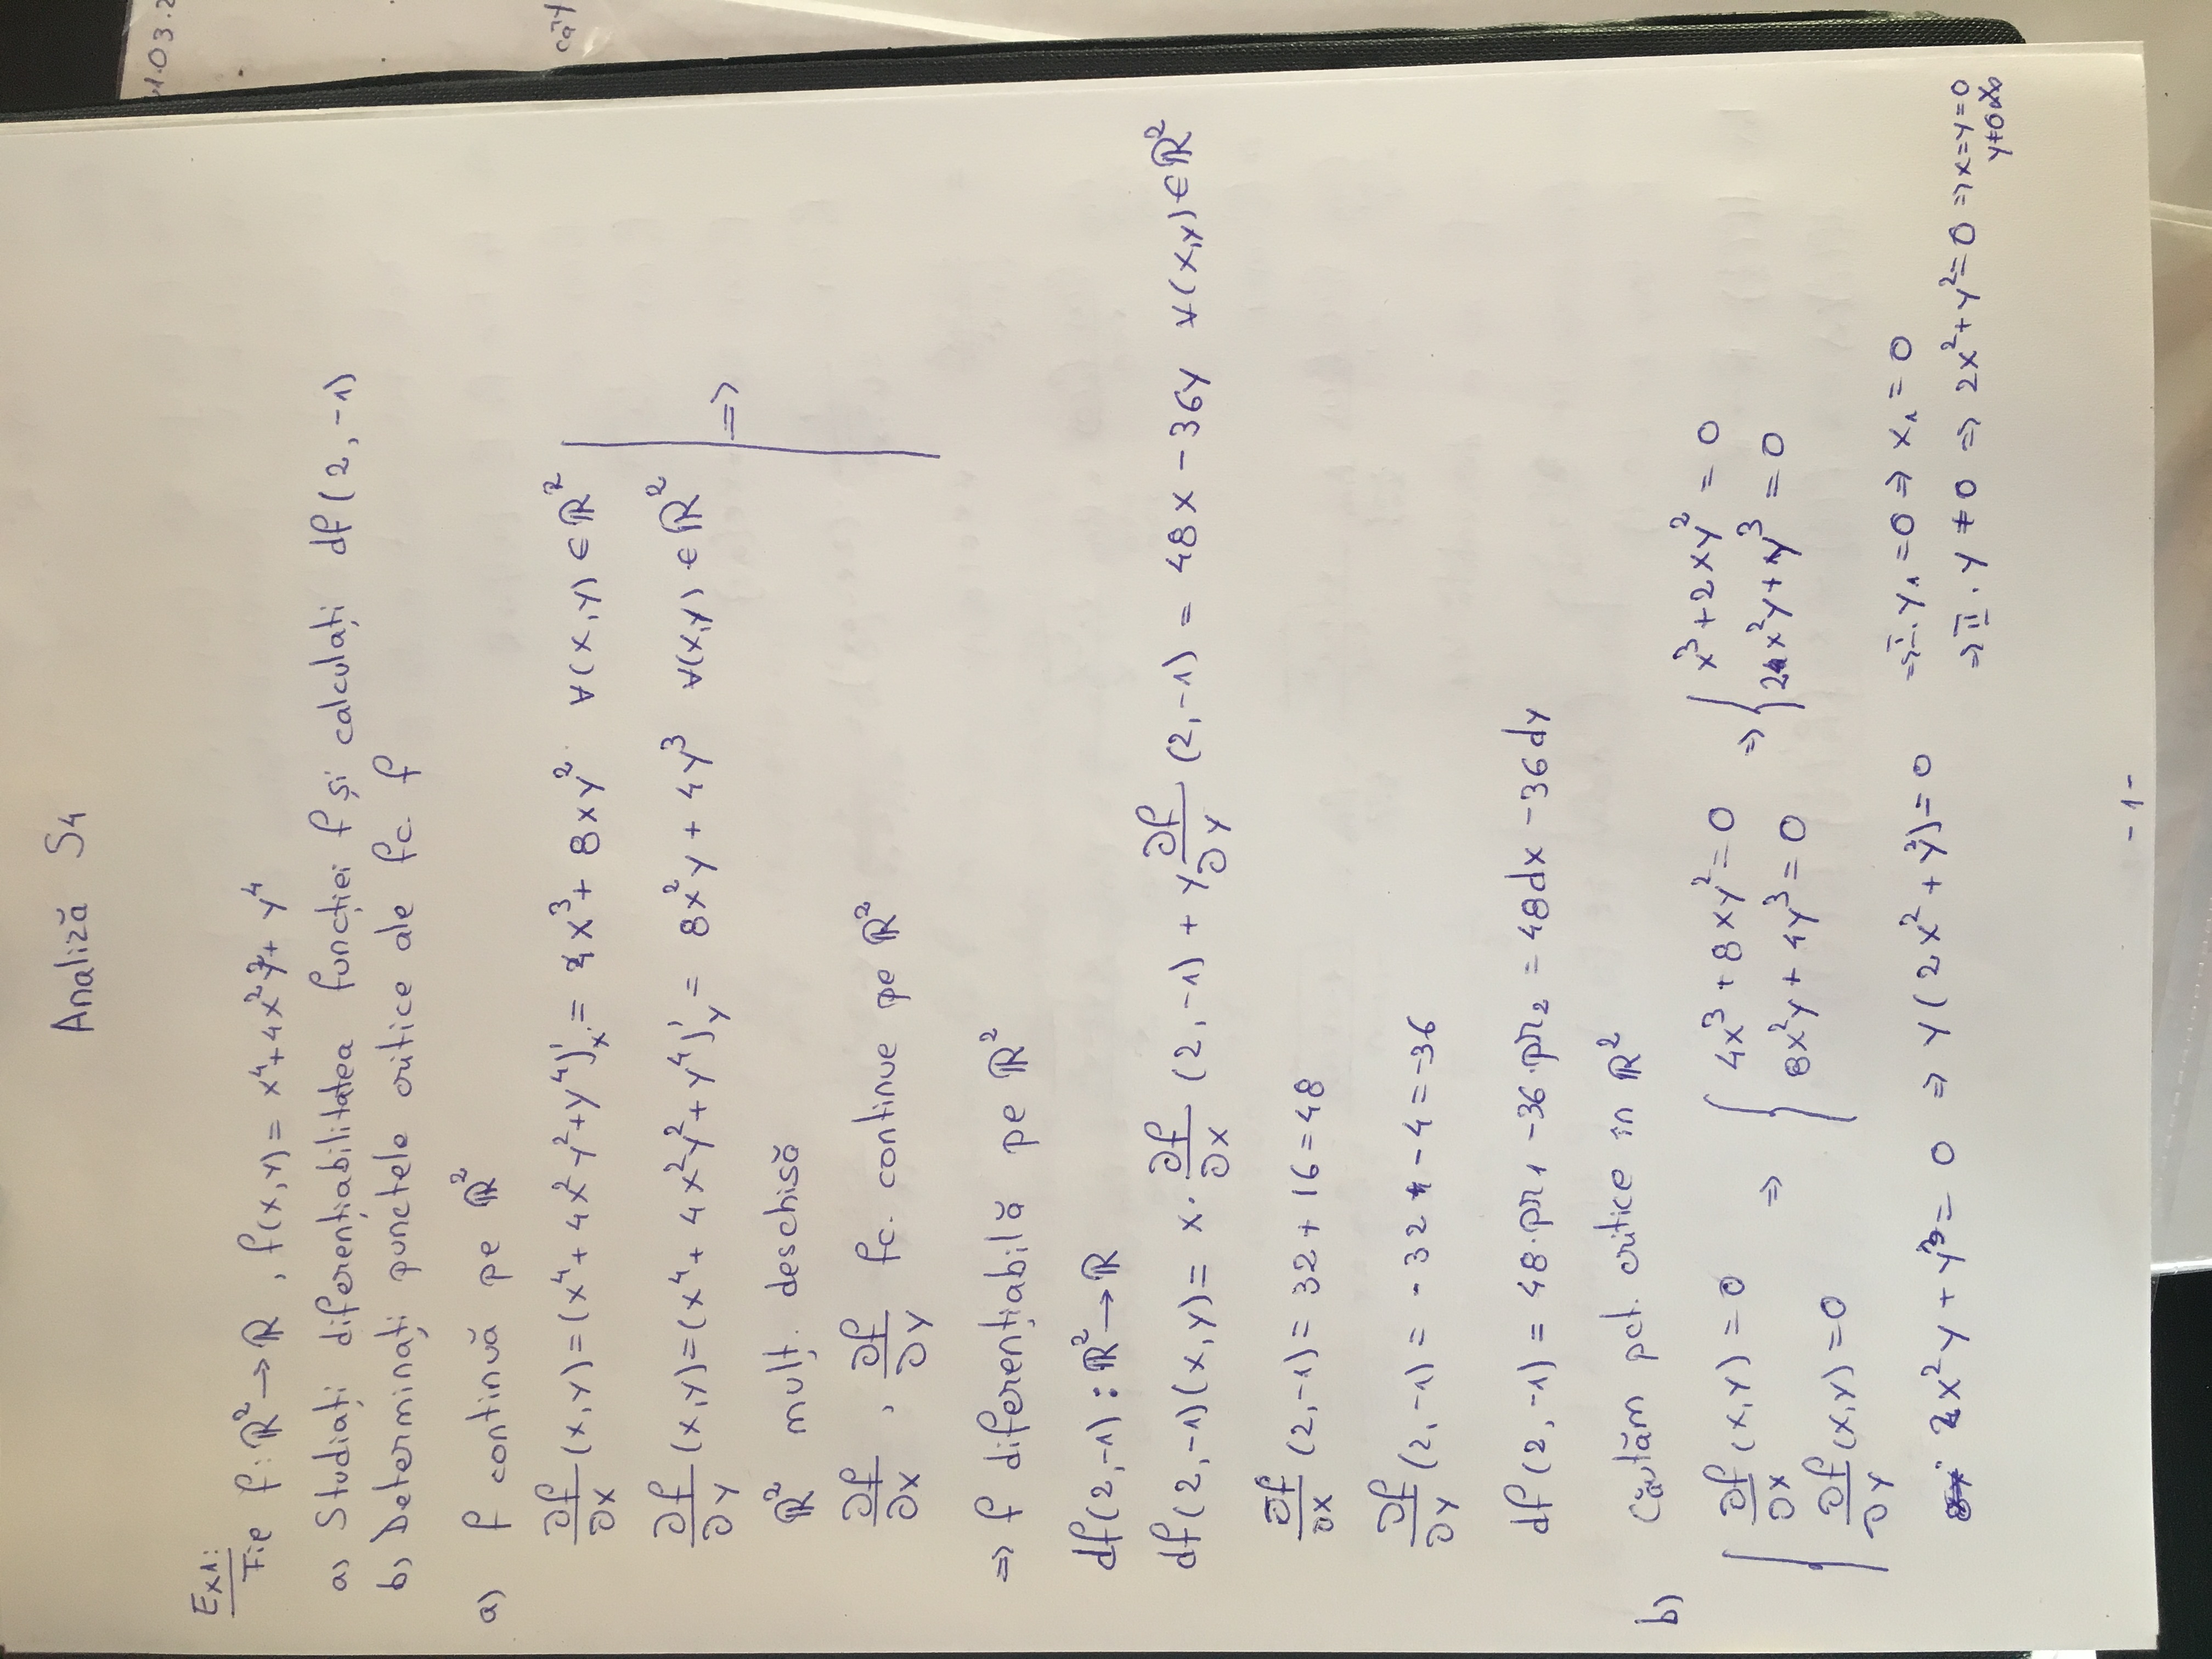 Analiză S4
Ex1:
Fie f: ℝ² → ℝ , f(x,y) = x⁴ + 4x²y² + y⁴
a) Studiați diferențiabilitatea funcției f și calculați df(2,-1)
b) Determinați punctele critice ale fc. f
a) f continuă pe ℝ²
∂f/∂x (x,y) = (x⁴ + 4x²y² + y⁴)'ₓ = 4x³ + 8xy² ∀(x,y) ∈ ℝ²
∂f/∂y (x,y) = (x⁴ + 4x²y² + y⁴)'ᵧ = 8x²y + 4y³ ∀(x,y) ∈ ℝ²
=>
ℝ² mulț. deschisă
∂f/∂x , ∂f/∂y fc. continue pe ℝ²
=> f diferențiabilă pe ℝ²
df(2,-1) : ℝ² → ℝ
df(2,-1)(x,y) = x· ∂f/∂x (2,-1) + y ∂f/∂y (2,-1) = 48x - 36y ∀(x,y) ∈ ℝ²
∂f/∂x (2,-1) = 32 + 16 = 48
∂f/∂y (2,-1) = -32 - 4 = -36
df(2,-1) = 48·pr₁ - 36·pr₂ = 48dx - 36dy
b) Căutăm pct. critice în ℝ²
{ ∂f/∂x (x,y) = 0 => { 4x³ + 8xy² = 0 => { x³ + 2xy² = 0
∂f/∂y (x,y) = 0 8x²y + 4y³ = 0 2x²y + y³ = 0
2x²y + y³ = 0 => y(2x² + y²) = 0 => I. y₁ = 0 => x₁ = 0
=> II. y ≠ 0 => 2x² + y² = 0 => x=y=0
y≠0
- 1 -
1.03.2